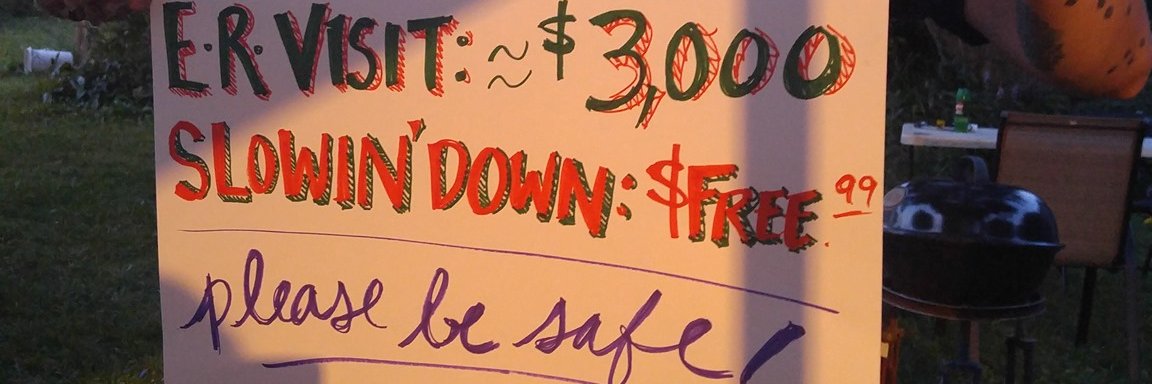 E.R. VISIT: ≈ $3,000
SLOWIN' DOWN: $FREE.99
please be safe!